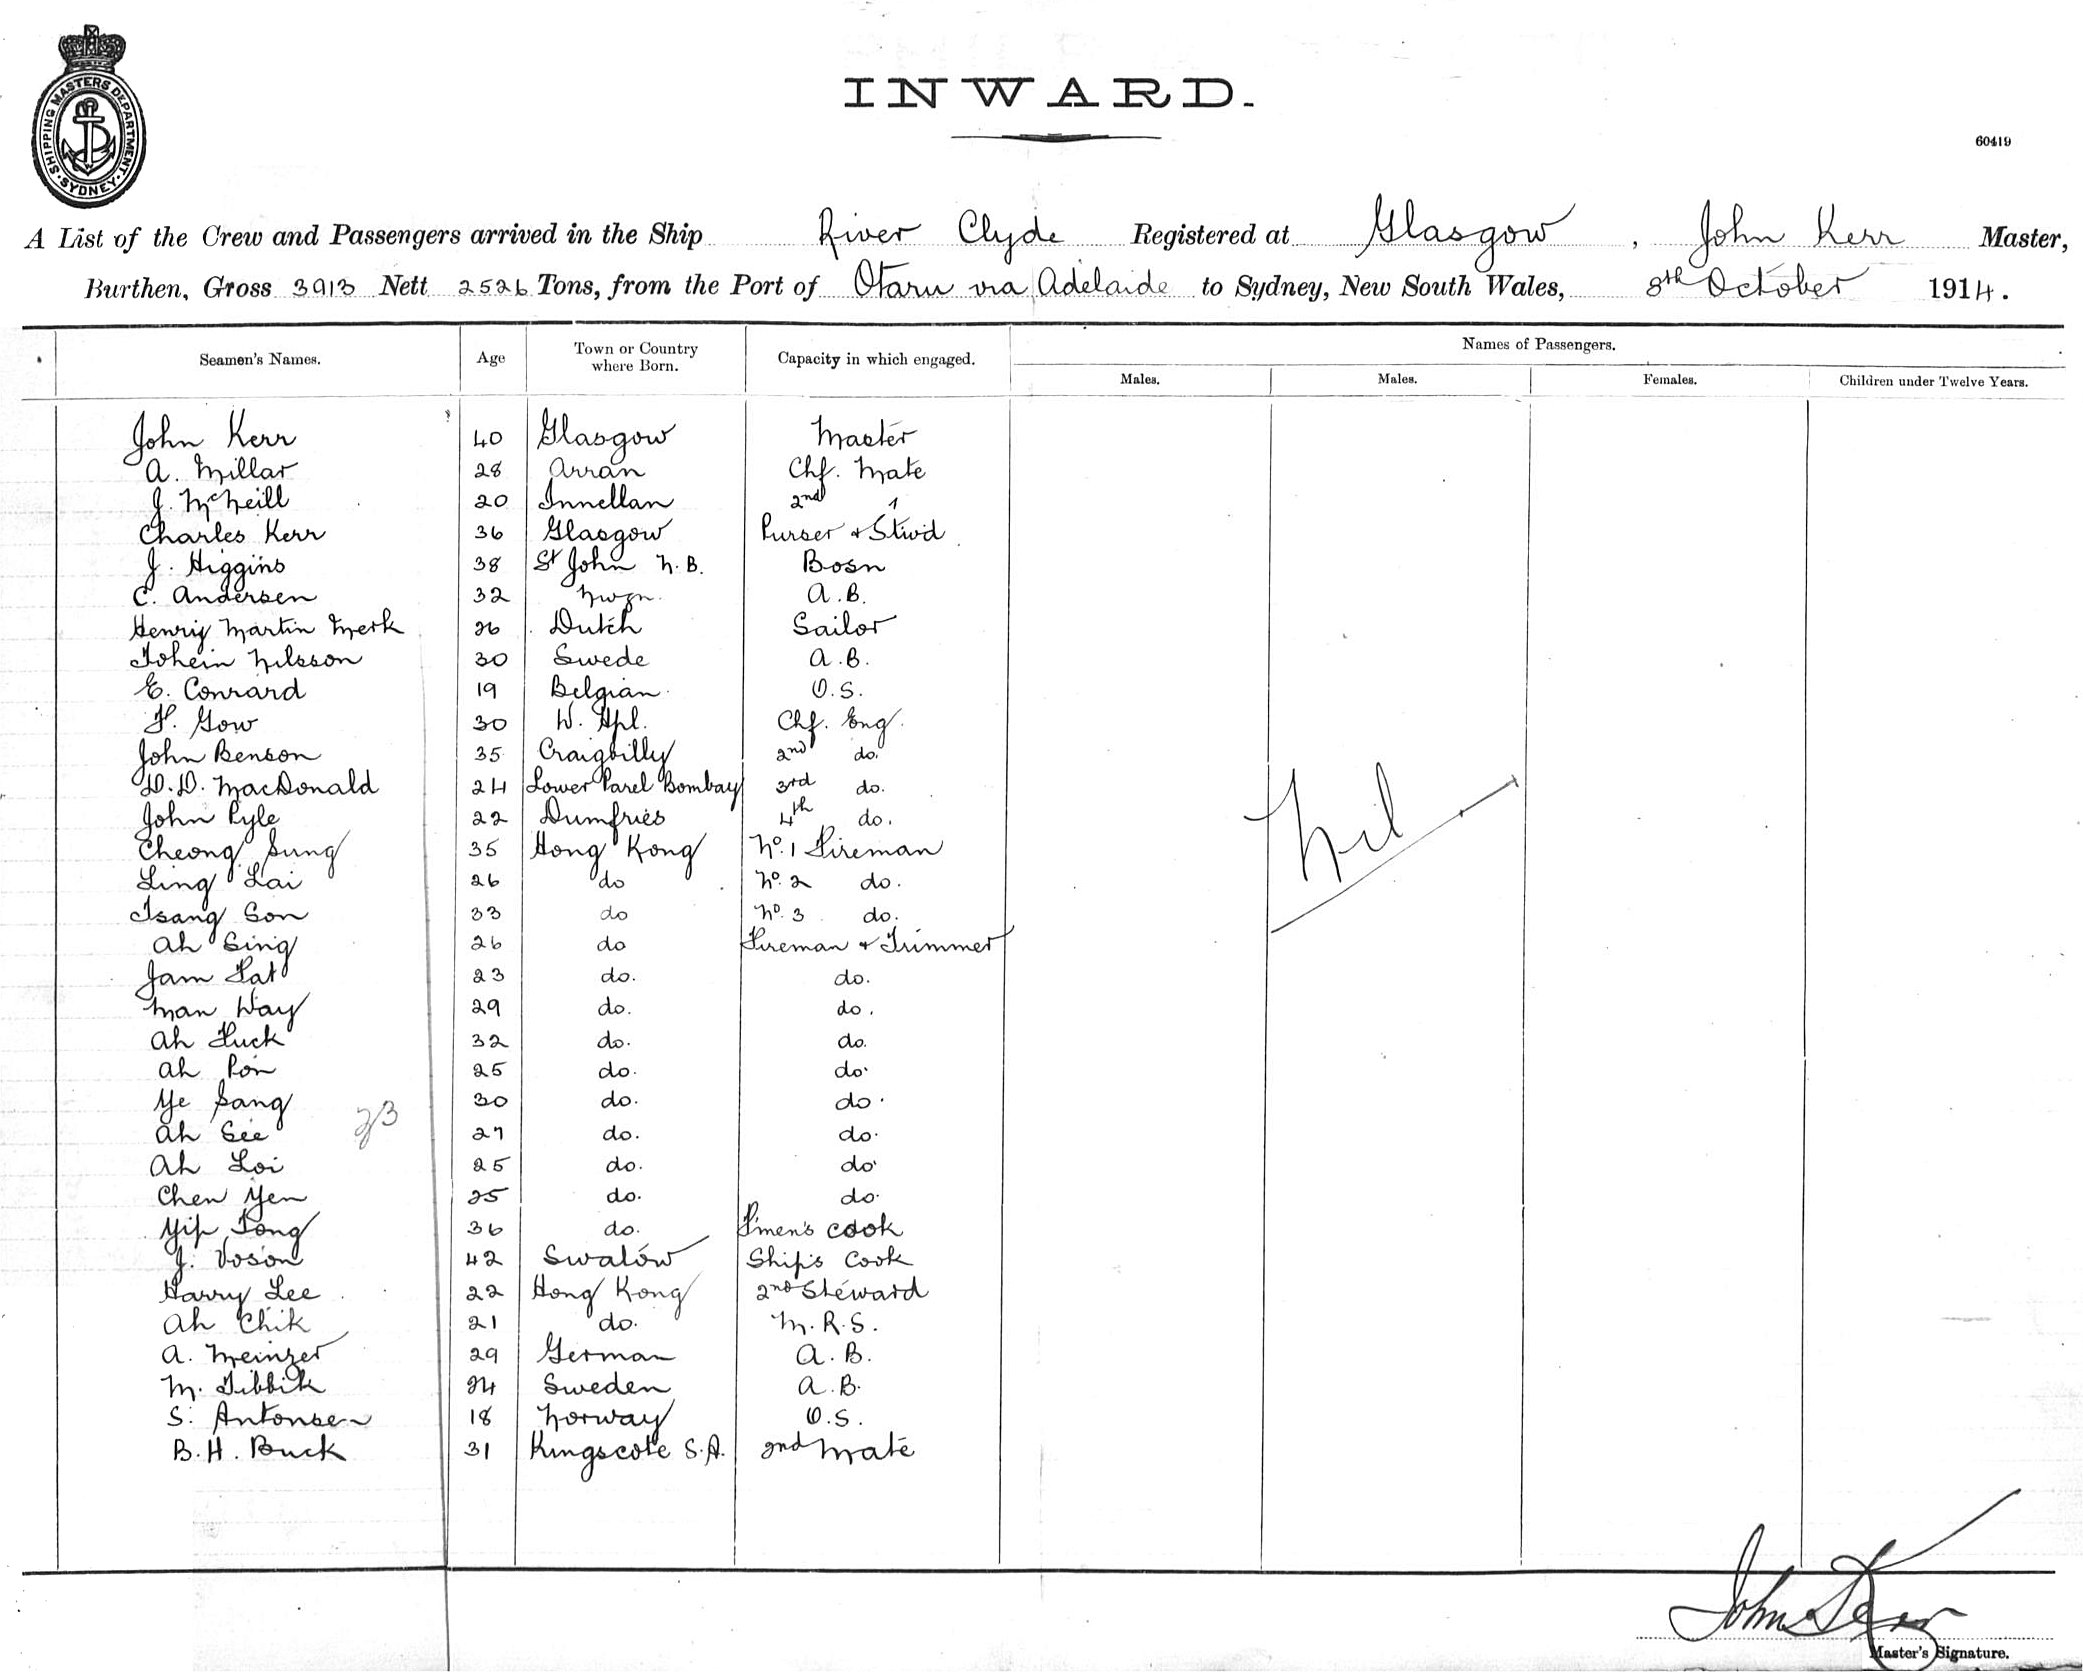 SHIPPING MASTERS DEPARTMENT. SYDNEY
INWARD.
60419
A List of the Crew and Passengers arrived in the Ship River Clyde Registered at Glasgow, John Kerr Master,
Burthen, Gross 3913 Nett 2526 Tons, from the Port of Otaru via Adelaide to Sydney, New South Wales, 8th October 1914.
Seamen's Names. Age Town or Country where Born. Capacity in which engaged. Names of Passengers.
Males. Males. Females. Children under Twelve Years.
John Kerr 40 Glasgow Master
A. Millar 28 Arran Chf. Mate
J. McNeill 20 Innellan 2nd
Charles Kerr 36 Glasgow Purser + Stwd
J. Higgins 38 St John N.B. Bosn
C. Andersen 32 Nwgn. A.B.
Henrij Martin Merk 26 Dutch Sailor
Johein Nilsson 30 Swede A.B.
E. Conrard 19 Belgian O.S.
F. Gow 30 W. Hpl. Chf. Eng.
John Benson 35 Craigbilly 2nd do.
D.D. MacDonald 24 Lower Parel Bombay 3rd do.
John Pyle 22 Dumfries 4th do.
Cheong Sung 35 Hong Kong No. 1 Fireman
Ling Lai 26 do No. 2 do.
Tsang Son 33 do No. 3 do.
Ah Sing 26 do Fireman + Trimmer
Jam Fat 23 do. do.
Man Way 29 do. do.
Ah Fuck 32 do. do.
Ah Pon 25 do. do.
Ye Sang 30 do. do.
Ah See 27 do. do.
Ah Loi 25 do. do
Chen Yen 25 do. do.
Yip Tong 36 do. F'men's cook
J. Voson 42 Swatow Ship's Cook
Harry Lee 22 Hong Kong 2nd Steward
Ah Chik 21 do. M.R.S.
A. Meinzer 29 German A.B.
M. Tibbik 24 Sweden A.B.
S. Antonsen 18 Norway O.S.
B.H. Buck 31 Kingscote S.A. 2nd Mate
Nil
John Kerr
Master's Signature.